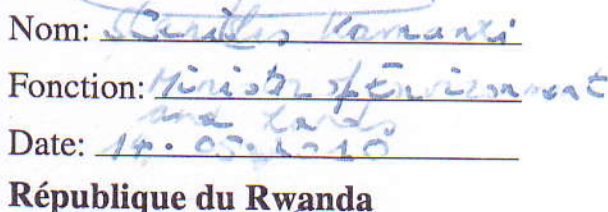 Nom: Stanislas Kamanzi
Fonction: Minister of Environment
and Lands
Date: 14. 05. 2010
République du Rwanda